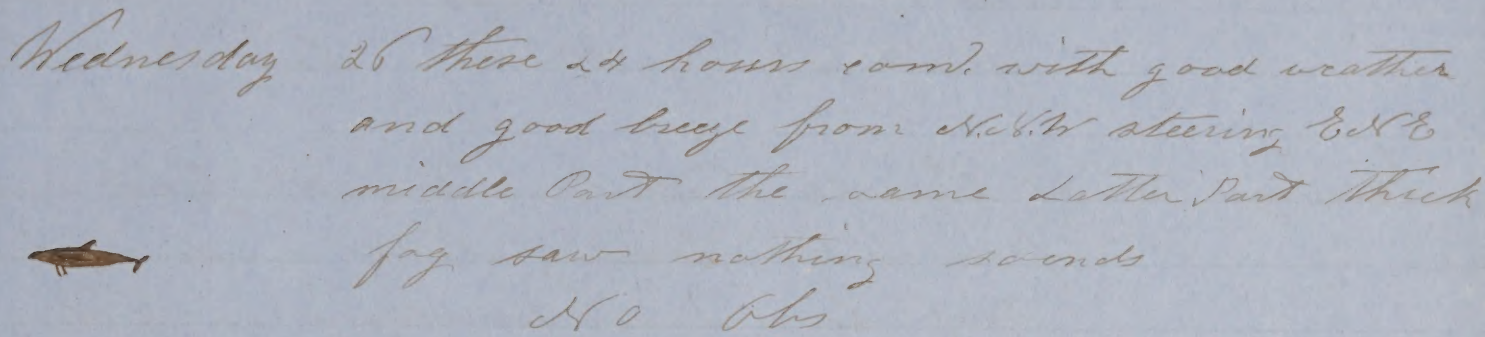 Wednesday 26 these 24 hours comd. with good weather
and good breeze from N.N.W steering ENE
middle Part the same Latter Part thick
fog saw nothing sounds
No Obs